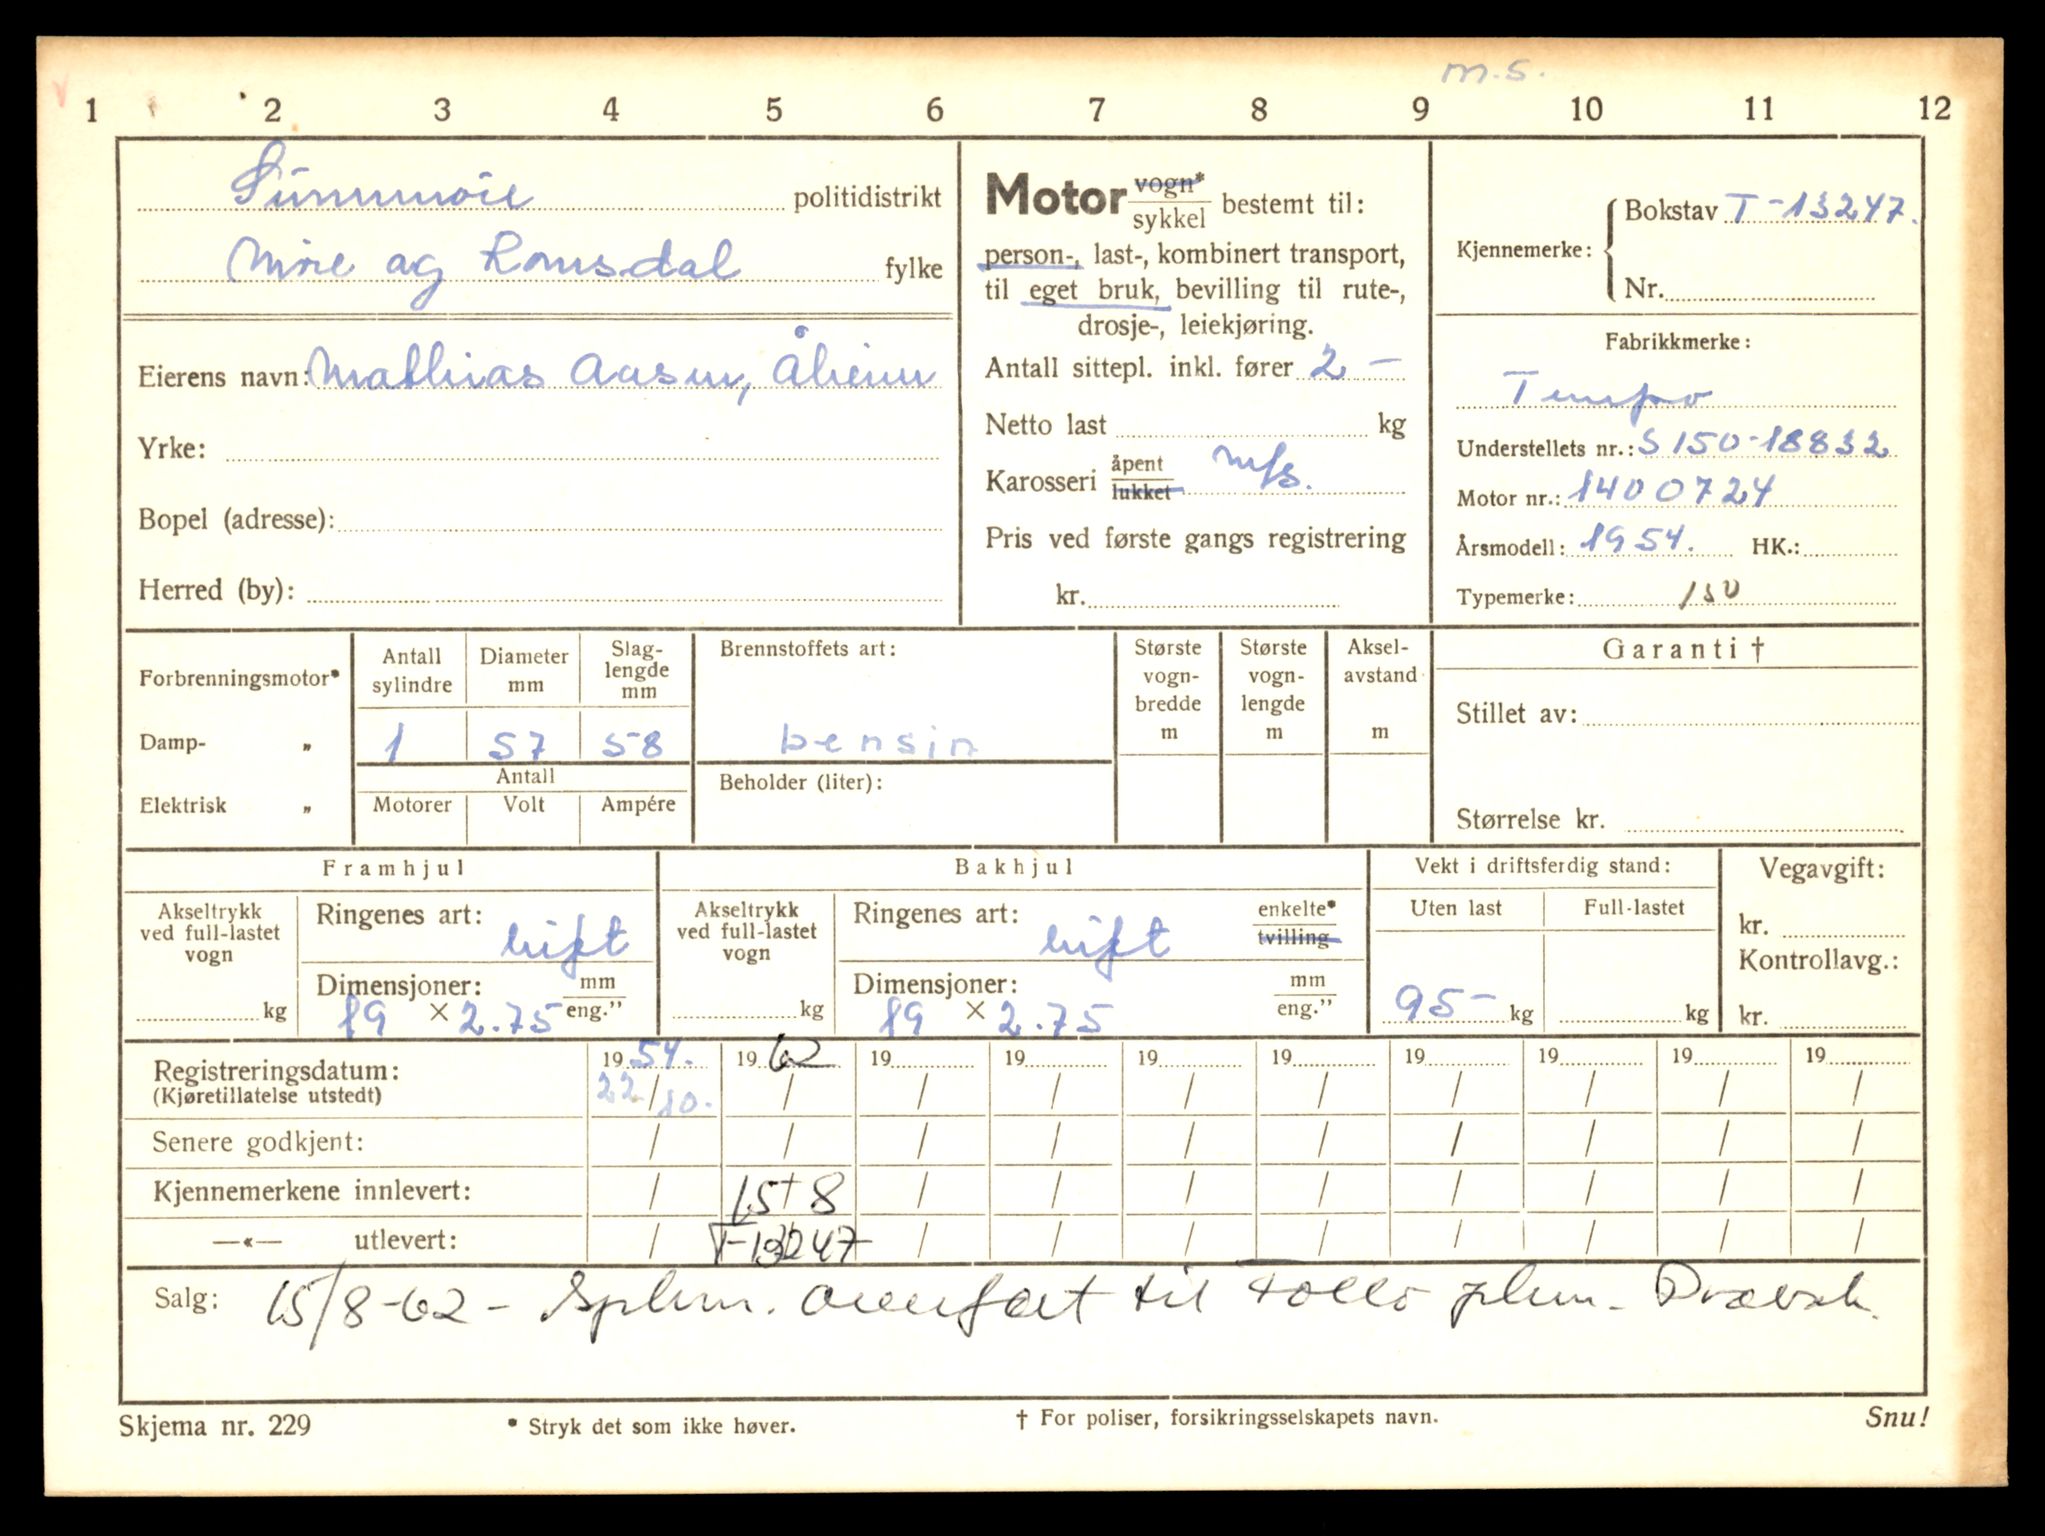 m.s.
1 2 3 4 5 6 7 8 9 10 11 12
Sunnmøre politidistrikt
Møre og Romsdal fylke
Eierens navn: Mathias Aasen, Åheim
Yrke:
Bopel (adresse):
Herred (by):
Motor vogn* sykkel bestemt til:
person-, last-, kombinert transport,
til eget bruk, bevilling til rute-,
drosje-, leiekjøring.
Antall sittepl. inkl. fører 2 -
Netto last kg
Karosseri åpent lukket mfs.
Pris ved første gangs registrering
kr.
Kjennemerke: Bokstav T-13247.
Nr.
Fabrikkmerke:
Tempo
Understellets nr.: S150-18832
Motor nr.: 1400724
Årsmodell: 1954. HK.:
Typemerke: 150
Forbrenningsmotor*
Damp- „
Elektrisk „
Antall sylindre
Diameter mm
Slag-lengde mm
1 57 58
Antall
Motorer Volt Ampére
Brennstoffets art:
bensin
Beholder (liter):
Største vogn-bredde m
Største vogn-lengde m
Aksel-avstand m
Garanti †
Stillet av:
Størrelse kr.
Framhjul
Akseltrykk ved full-lastet vogn
kg
Ringenes art: luft
Dimensjoner: mm eng.”
19 × 2.75
Bakhjul
Akseltrykk ved full-lastet vogn
kg
Ringenes art: luft enkelte* tvilling
Dimensjoner: mm eng.”
19 × 2.75
Vekt i driftsferdig stand:
Uten last Full-lastet
95- kg kg
Vegavgift:
kr.
Kontrollavg.:
kr.
Registreringsdatum: 19 54. 19 62 19 19 19 19 19 19 19 19
(Kjøretillatelse utstedt) 22/10. / / / / / / / / /
Senere godkjent: / / / / / / / / / /
Kjennemerkene innlevert: / 15/8 / / / / / / / /
—«— utlevert: / T-13247 / / / / / / / /
Salg: 15/8-62 - Splum. overført til Follo plum. Drøbak.
Skjema nr. 229
* Stryk det som ikke høver.
† For poliser, forsikringsselskapets navn.
Snu!